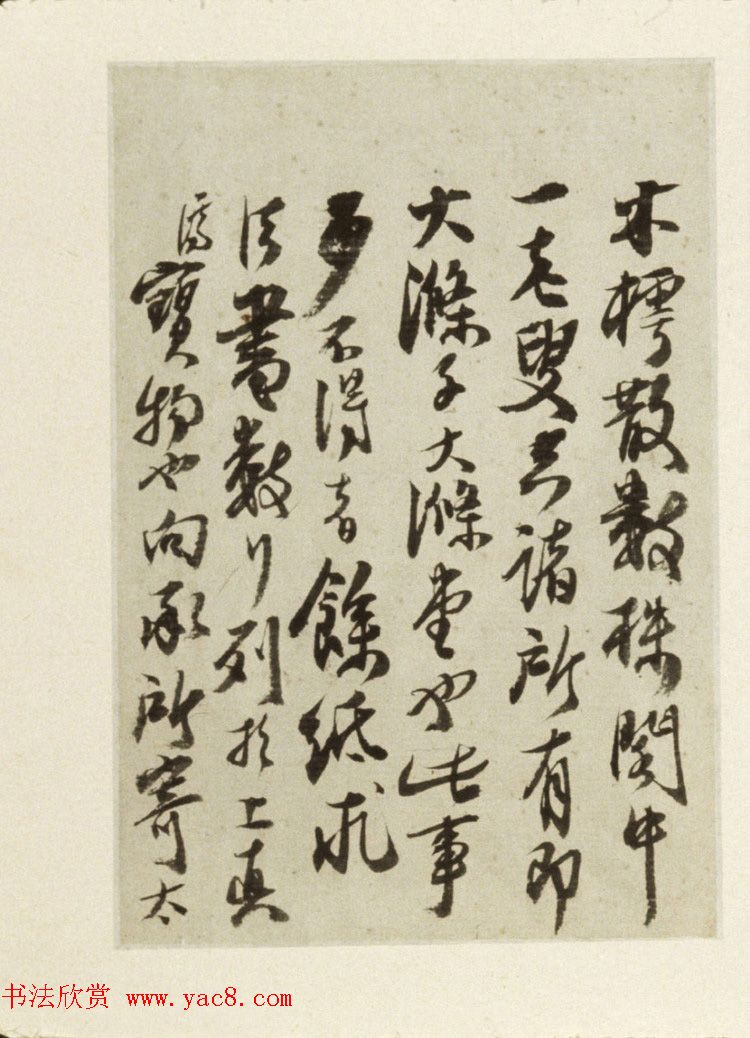 木樗散數株閣中
一老叟空諸所有即
大滌子大滌堂也此事
少不得者餘紙求
法書數行列於上真
濟寶物也向承所寄太
书法欣赏 www.yac8.com